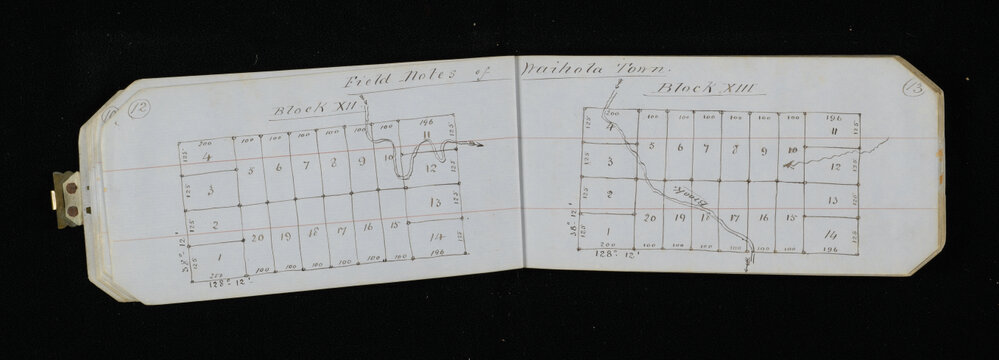 12
Field Notes of Waihola Town.
13
Block XII
200 100 100 100 100 100 196
125 4 5 6 7 8 9 10 11 125
125 3 12 125
125 2 13
125 1 20 19 18 17 16 15 14 125
38° 12'
251 100 100 100 100 100 100 196
128° 12'
Block XIII
200 100 100 100 100 100 100 196
125 4 5 6 7 8 9 10 11 125
125 3 12 125
Brook
125 2 13 125
125 1 20 19 18 17 16 15 14 125
38° 12'
200 100 100 100 100 100 196
128° 12'